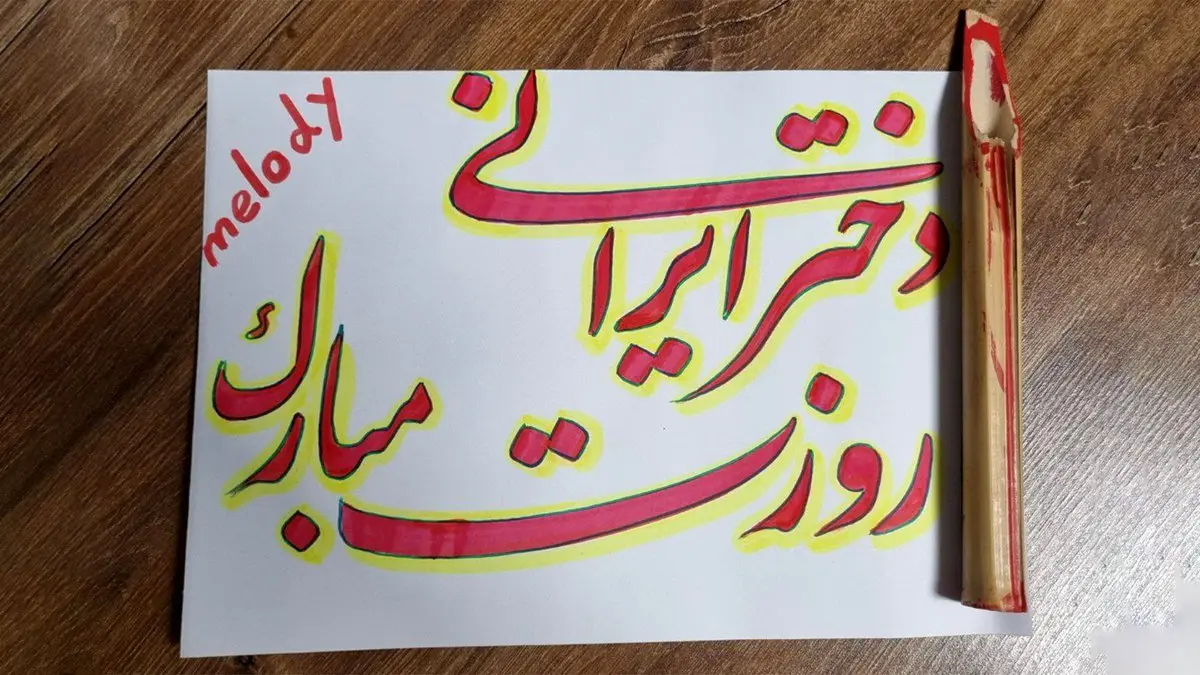 melody
دختر ایرانی
روزت مبارک